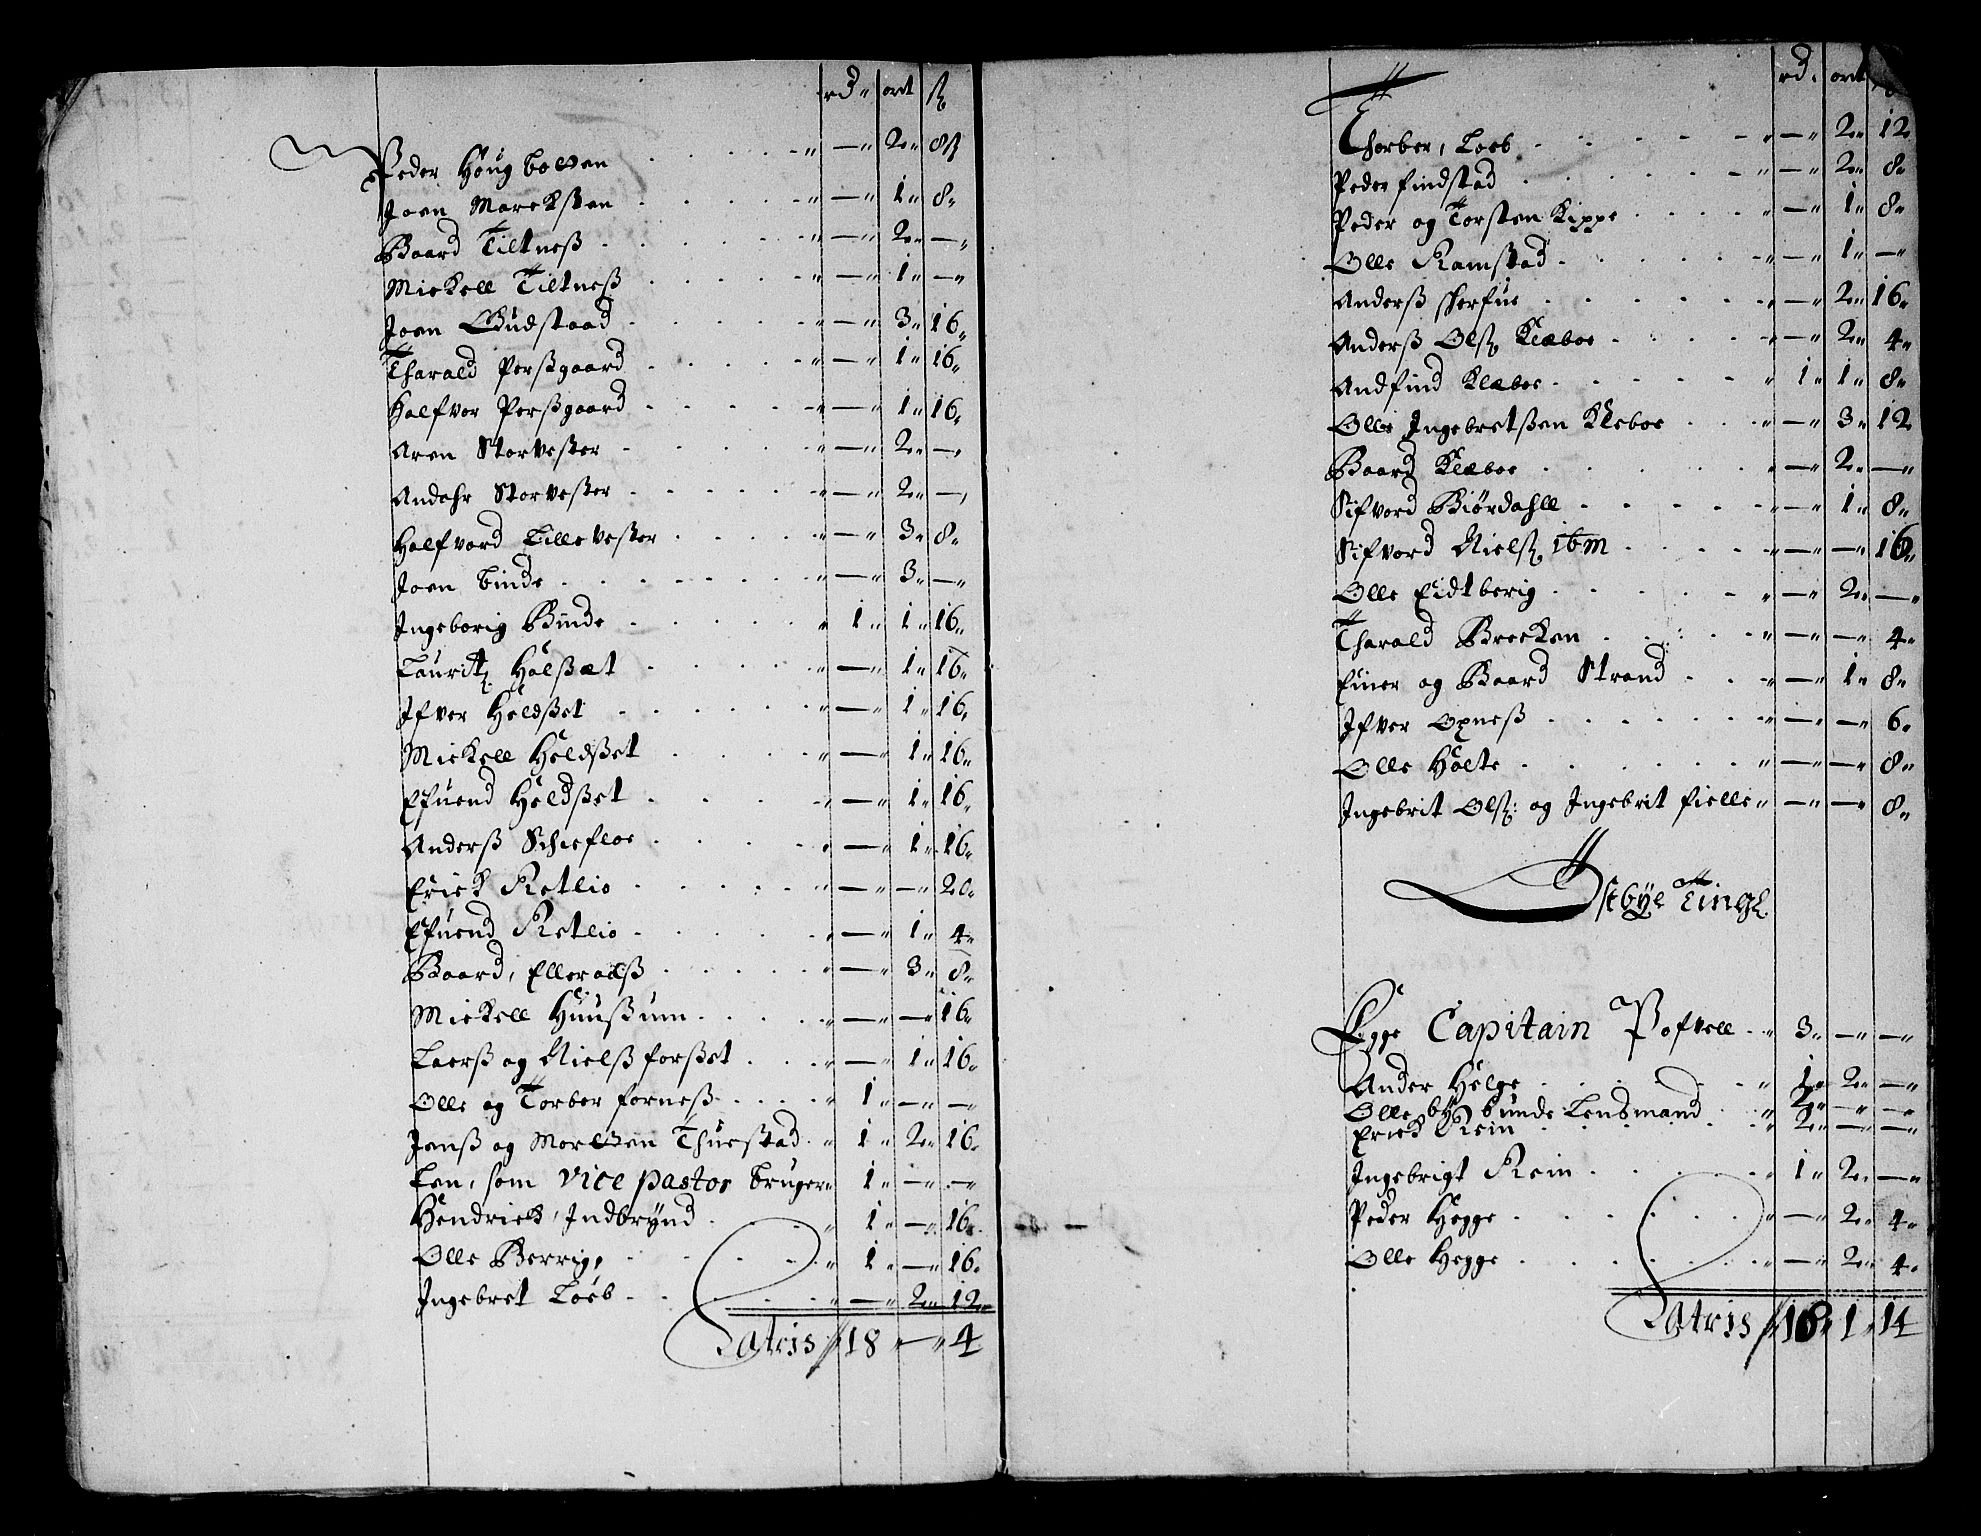 rd ort ß
Peder Hougbolden — 2 8 ß
Joen Marcksten — 1 8
Baard Tiltneß — 2 —
Mickell Tiltneß — 1 —
Joen Gudstaad — 3 16
Tharald Perßgaard — 1 16
Halfvor Perßgaard — 1 16
Aren Storveßer — 2 —
Andahr Storveßer — 2 —
Halfvard Lilleveßer — 3 8
Joen Binde — 3 —
Ingeborig Binde 1 1 16
Lauritz Halßæt — 1 16
Ifver Heldßet — 1 16
Mickell Heldßet — 1 16
Efuend Heldßet — 1 16
Anderß Schiefloe — 1 16
Erick Retlio — — 20
Efuend Retlio — 1 4
Baard, Elleraaß — 3 8
Mickell Huußum — — 16
Laerß og Nielß forßet — 1 16
Olle og Torber forneß 1 — —
Jenß og Morten Thueßtad 1 2 16
Een, som vice pastor bruger 1 — —
Hendrick Indbrynd 1 — 16
Olle Berrig, 1 — 16
Ingebret Loeb — 2 12
Latris 18 — 4
rd. ort
Thorber, Loeb — 2 12
Peder findstad — 2 8
Peder og Torsten Kippe — 1 8
Olle Ramstad — 1 —
Anderß sherfue — 2 16
Anderß Olß Klæboe — 2 4
Andfind Klæboe 1 1 8
Olle Ingebretßen Kleboe — 3 12
Baard Klæboe — 2 —
Sifvord Biørdahll — 1 8
Sifvord Nielß. ibm — — 16
Olle Eidtberig — 2 —
Tharald Brecken — — 4
Einer og Baard Strand — 1 8
Ifver Opneß — — 6
Olle Holte — — 8
Ingebrit Olß: og Ingebrit fielle — — 8
Østbÿe Tingl
Egge Capitain Pofvell 3 — —
Ander Helge 1 2 —
Olle bÿ bunde Lensmand 2 — —
Erick Rein 2 — —
Ingebrigt Rein 1 2 —
Peder Hegge — 2 4
Olle Hegge — 2 4
Latris 18 1 14